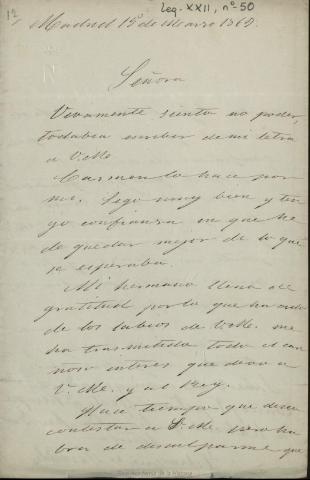 12
Leg-XXII, nº-50
Madrid 15 de Marzo 1869.
Señora
Vivamente siento no poder
todabia escribir de mi letra
a V.M.
Carmen lo hace por
mi. Sigo muy bien y ten
go confianza en que he
de quedar mejor de lo que
se esperaba.
Mi hermana llena de
gratitud por lo que ha
de los labios de V.M. me
ha trasmitido todo el cari
ñoso interes que devo a
V.M. y al Rey.
Hace tiempo que deseo
contestar a S.M. pero ha
bra de disculparme que
Real Academia de la Historia